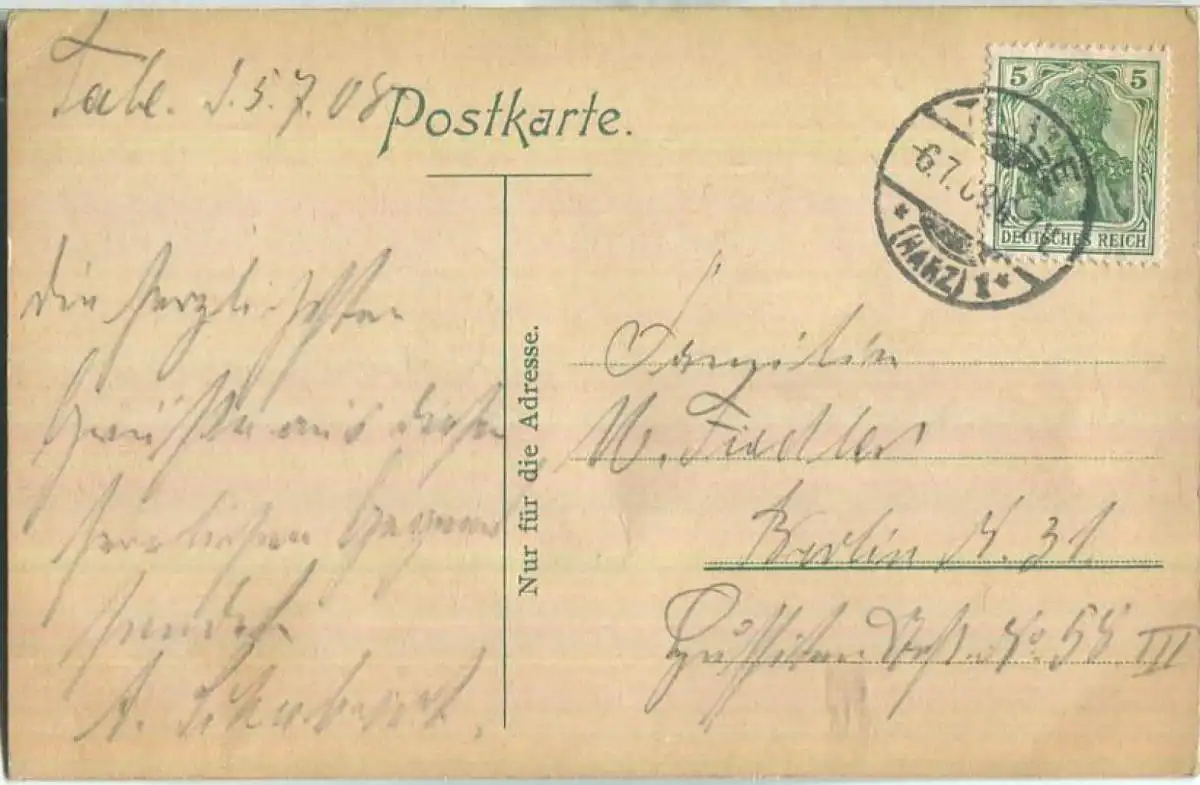 Tale. d. 5.7.08
Postkarte.
5 5
DEUTSCHES REICH
6.7.08
* (HARZ) 1 *
Die herzlichsten
Grüße aus dieser
herrlichen Gegend
sendet
A. Schubert.
Nur für die Adresse.
Familie
W. Fiedler
Berlin N. 31.
Hussitenstr. No. 58 III